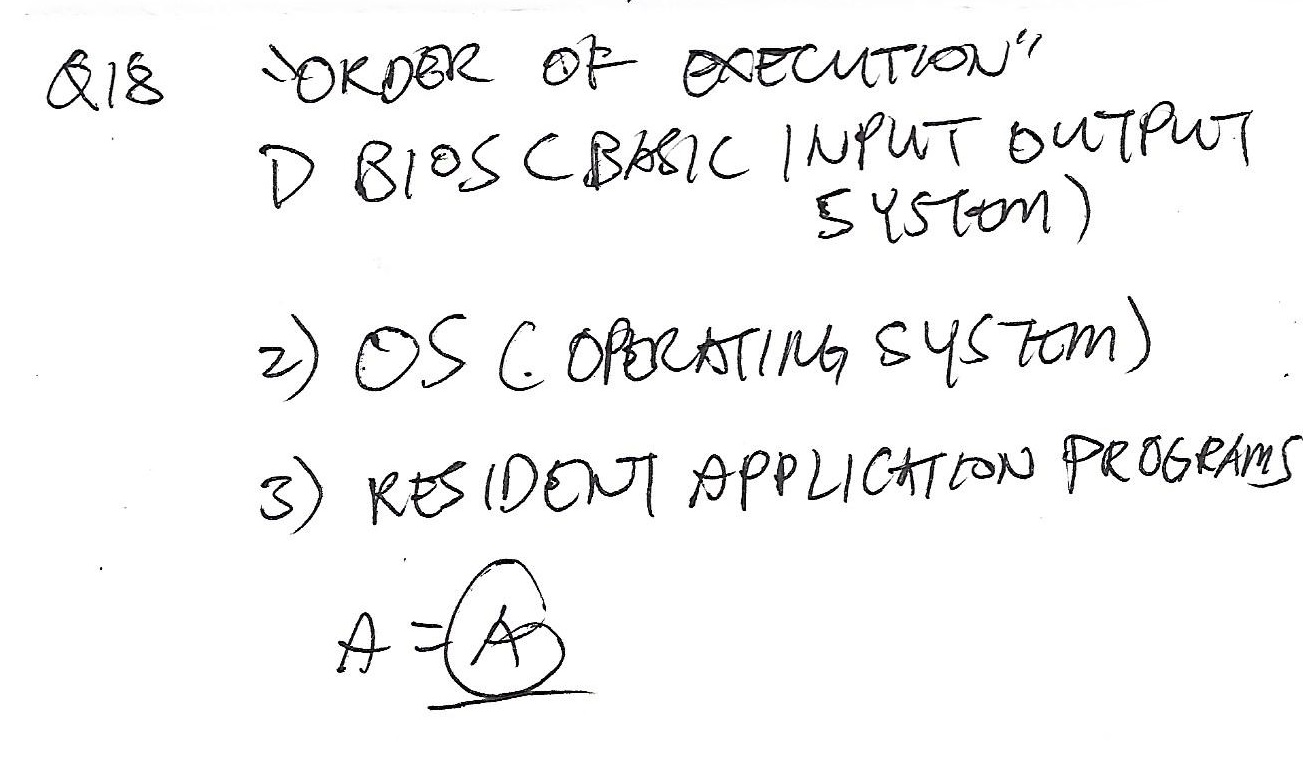 Q18 "ORDER OF EXECUTION"
1) BIOS (BASIC INPUT OUTPUT
SYSTEM)
2) OS (OPERATING SYSTEM)
3) RESIDENT APPLICATION PROGRAMS
A = A